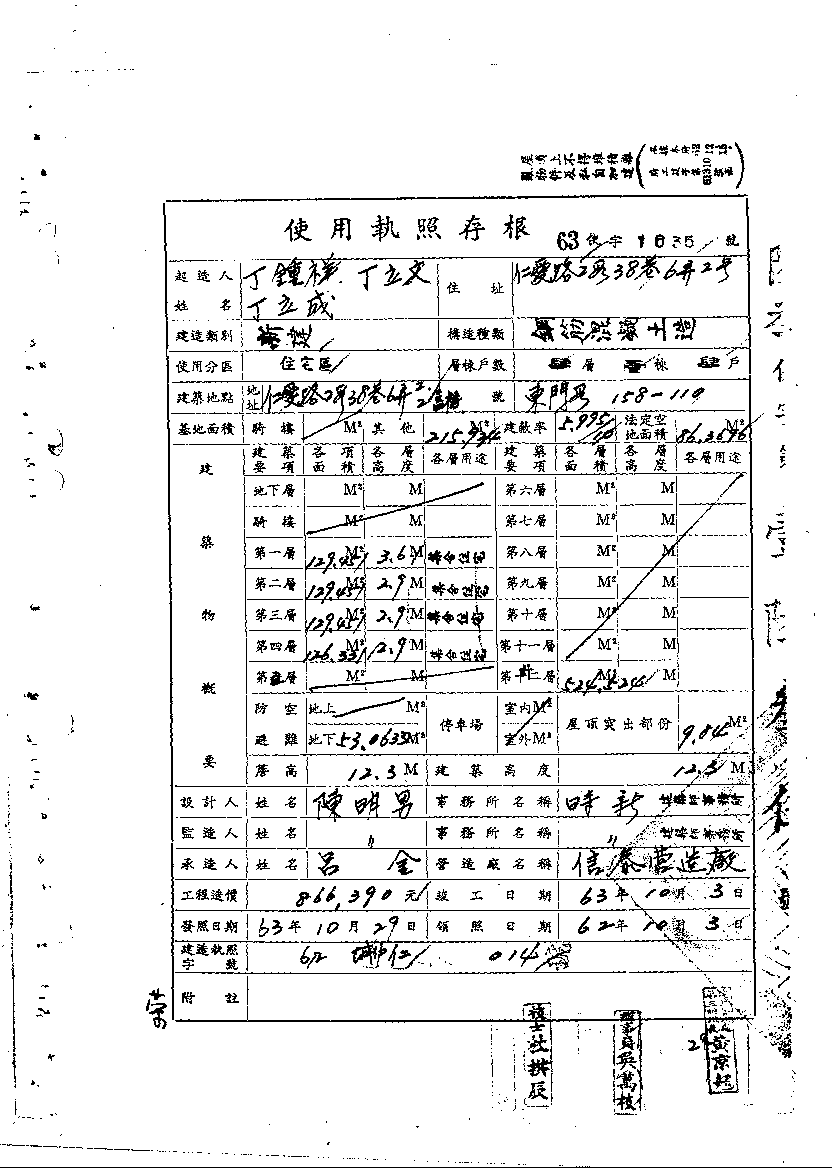 屋頂上不得堆積雜
使用執照存根
63 使字 1635 號
起造人 姓名 丁鍾祥 丁立文 丁立成 住址 仁愛路2段38巷6弄2号
建造類別 構造種類 鋼筋混凝土造
使用分區 住宅區 層棟戶數 肆層 壹棟 肆戶
建築地點 地址 仁愛路2段38巷6弄 號 東門段 158-110
基地面積 騎樓 M² 其他 M² 建蔽率 5.995/10 法定空地面積 86.3696 M²
建築要項 各項面積 各層高度 各層用途 建築要項 各層面積 各層高度 各層用途
建築物概要
地下層 M² M 第六層 M² M
騎樓 M² M 第七層 M² M
第一層 129.457 M² 3.6 M 集合住宅 第八層 M² M
第二層 129.457 M² 2.9 M 集合住宅 第九層 M² M
第三層 129.457 M² 2.9 M 集合住宅 第十層 M² M
第四層 126.331 M² 2.9 M 集合住宅 第十一層 M² M
第五層 M² M 524.5241 M² M
防空避難 地上 M² 停車場 室內 M² 屋頂突出部份 9.84 M²
地下 53.0633 M² 室外 M²
簷高 12.3 M 建築高度 12.3 M
設計人 姓名 陳明男 事務所名稱 時新 建築師事務所
監造人 姓名 〃 事務所名稱 〃 建築師事務所
承造人 姓名 呂金 營造廠名稱 信泰营造廠
工程造價 866,390元 竣工日期 63年10月3日
發照日期 63年10月29日 領照日期 62年10月3日
建造執照字號 62 014
附註